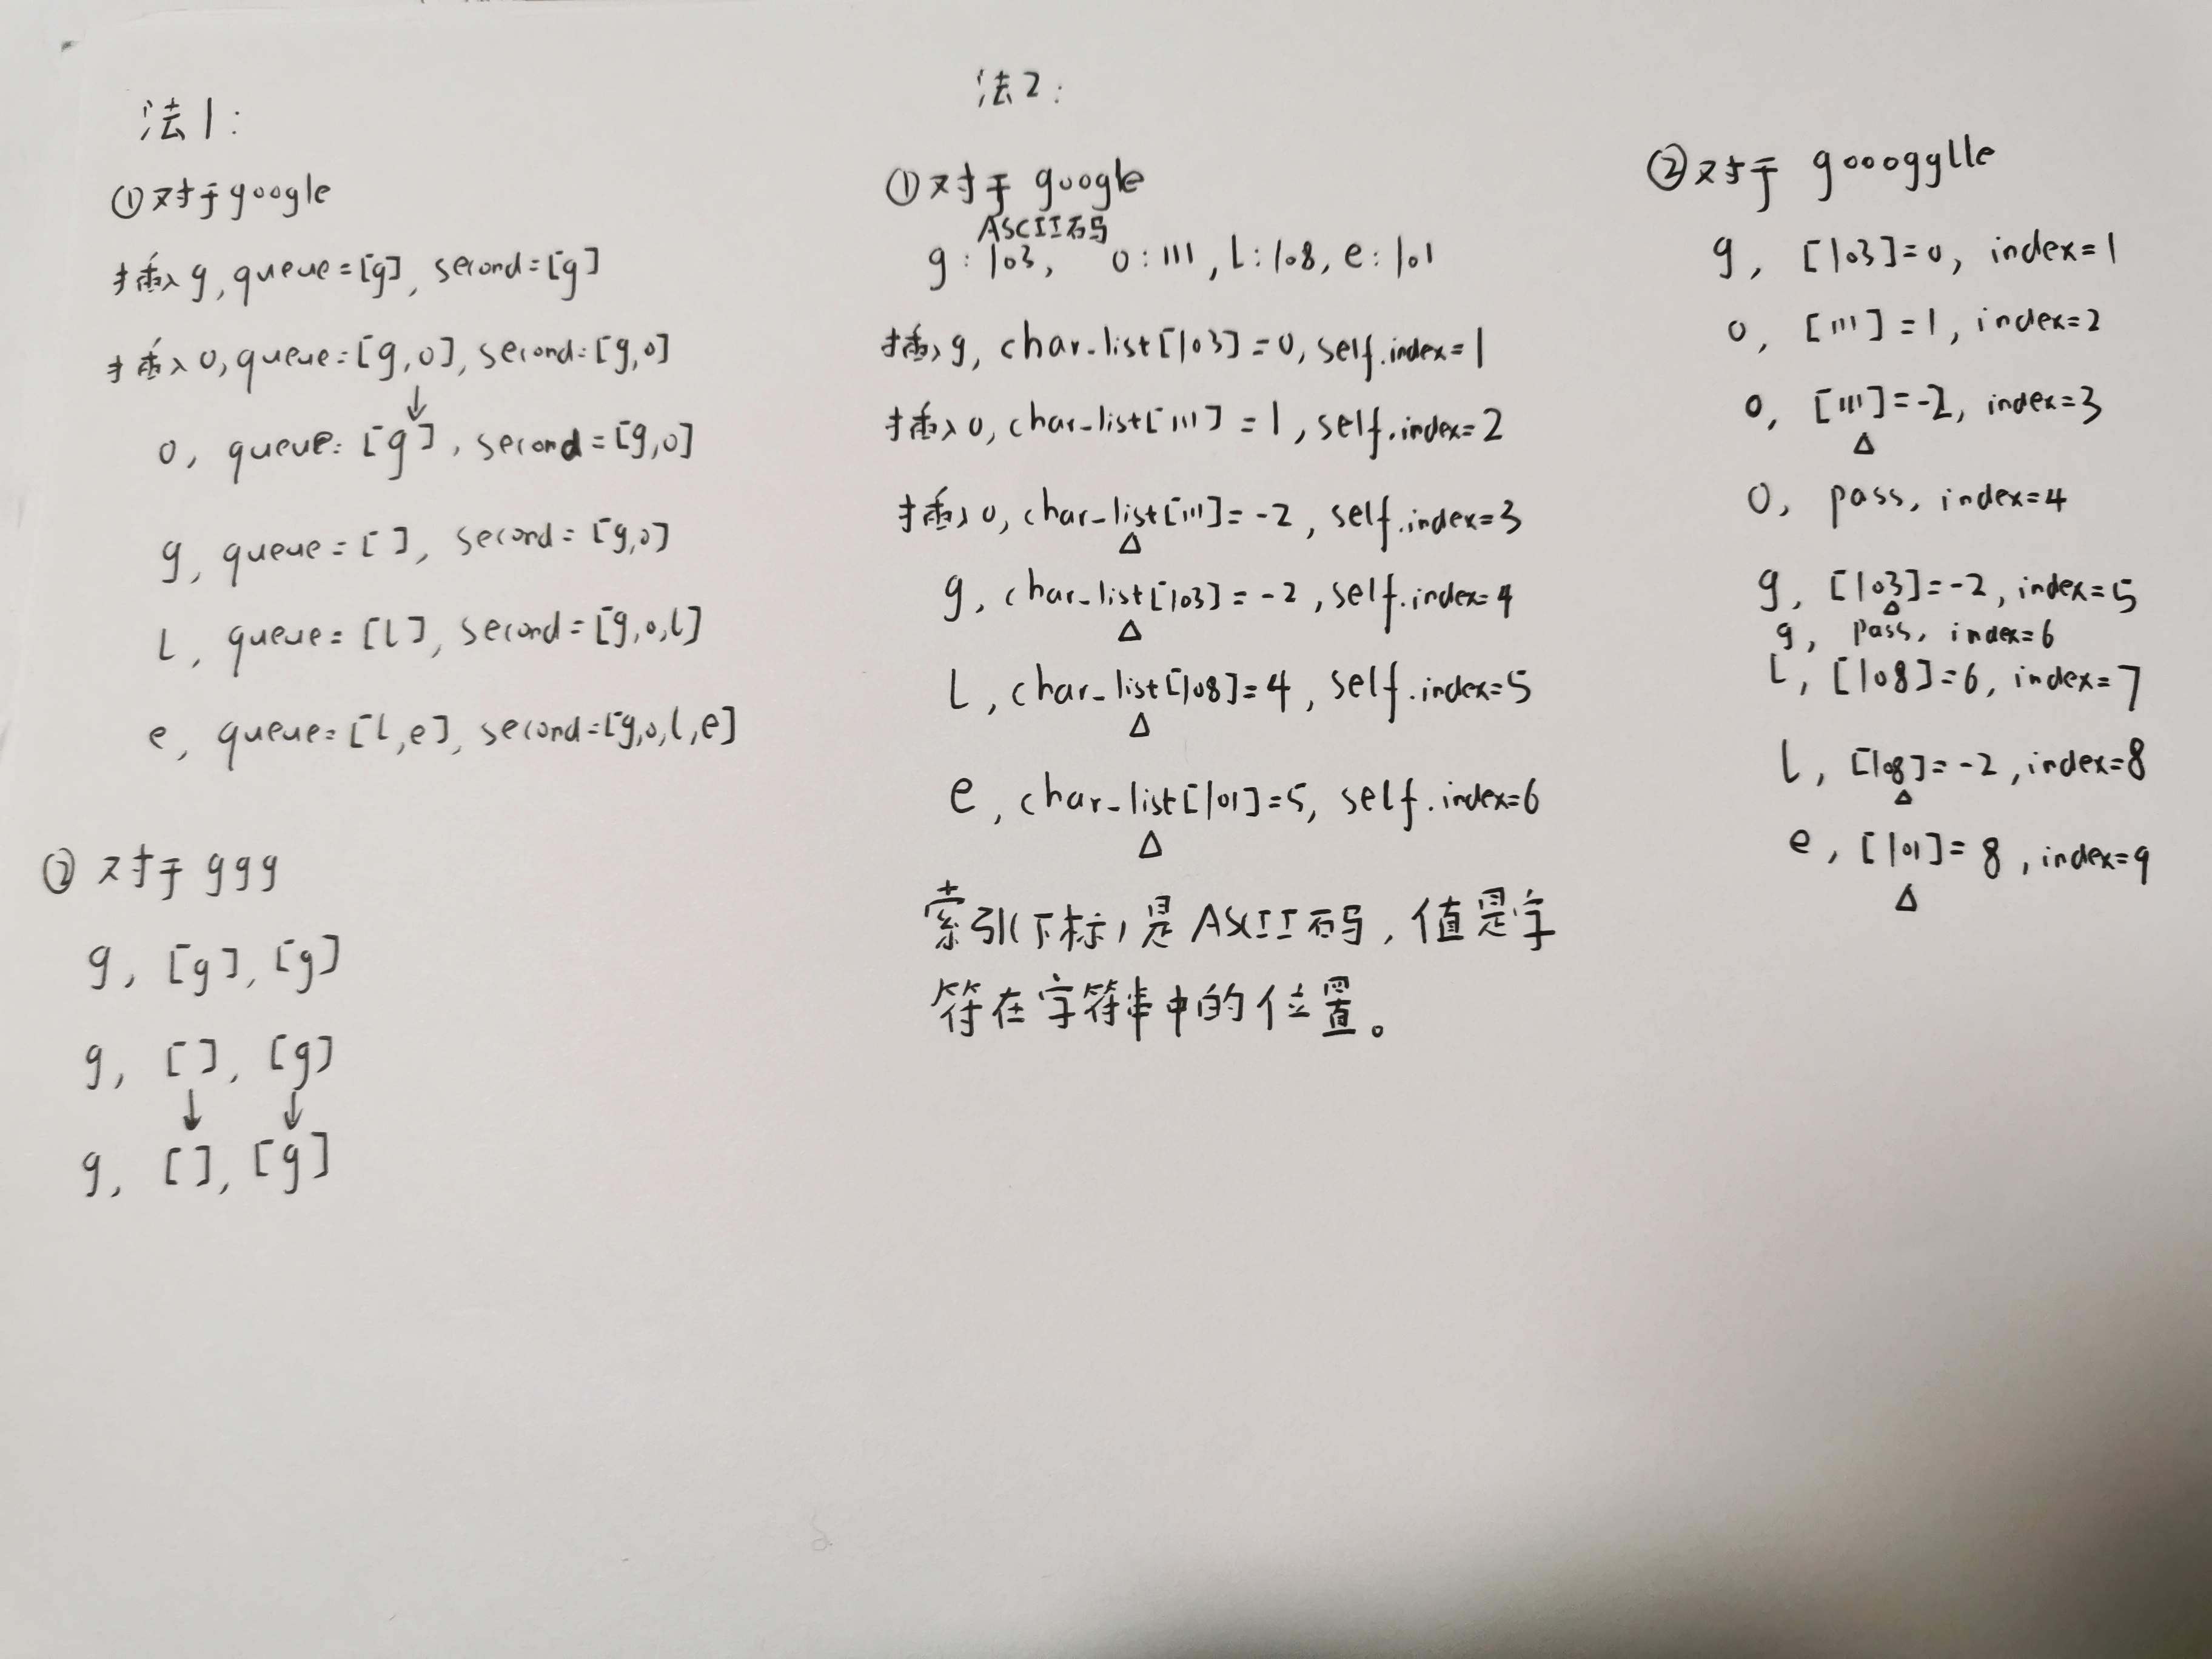 法1:
①对于google
插入g, queue=[g], second=[g]
插入o, queue=[g,o], second=[g,o]
↓
o, queue=[g], second=[g,o]
g, queue=[ ], second=[g,o]
l, queue=[l], second=[g,o,l]
e, queue=[l,e], second=[g,o,l,e]
②对于ggg
g, [g], [g]
g, [ ], [g]
↓ ↓
g, [ ], [g]
法2:
①对于google
ASCII码
g:103, o:111, l:108, e:101
插入g, char_list[103]=0, self.index=1
插入o, char_list[111]=1, self.index=2
插入o, char_list[111]=-2, self.index=3
△
g, char_list[103]=-2, self.index=4
△
l, char_list[108]=4, self.index=5
△
e, char_list[101]=5, self.index=6
△
索引(下标)是ASCII码,值是字
符在字符串中的位置。
②对于gooogglle
g, [103]=0, index=1
o, [111]=1, index=2
o, [111]=-2, index=3
△
o, pass, index=4
g, [103]=-2, index=5
△
g, pass, index=6
l, [108]=6, index=7
l, [108]=-2, index=8
△
e, [101]=8, index=9
△